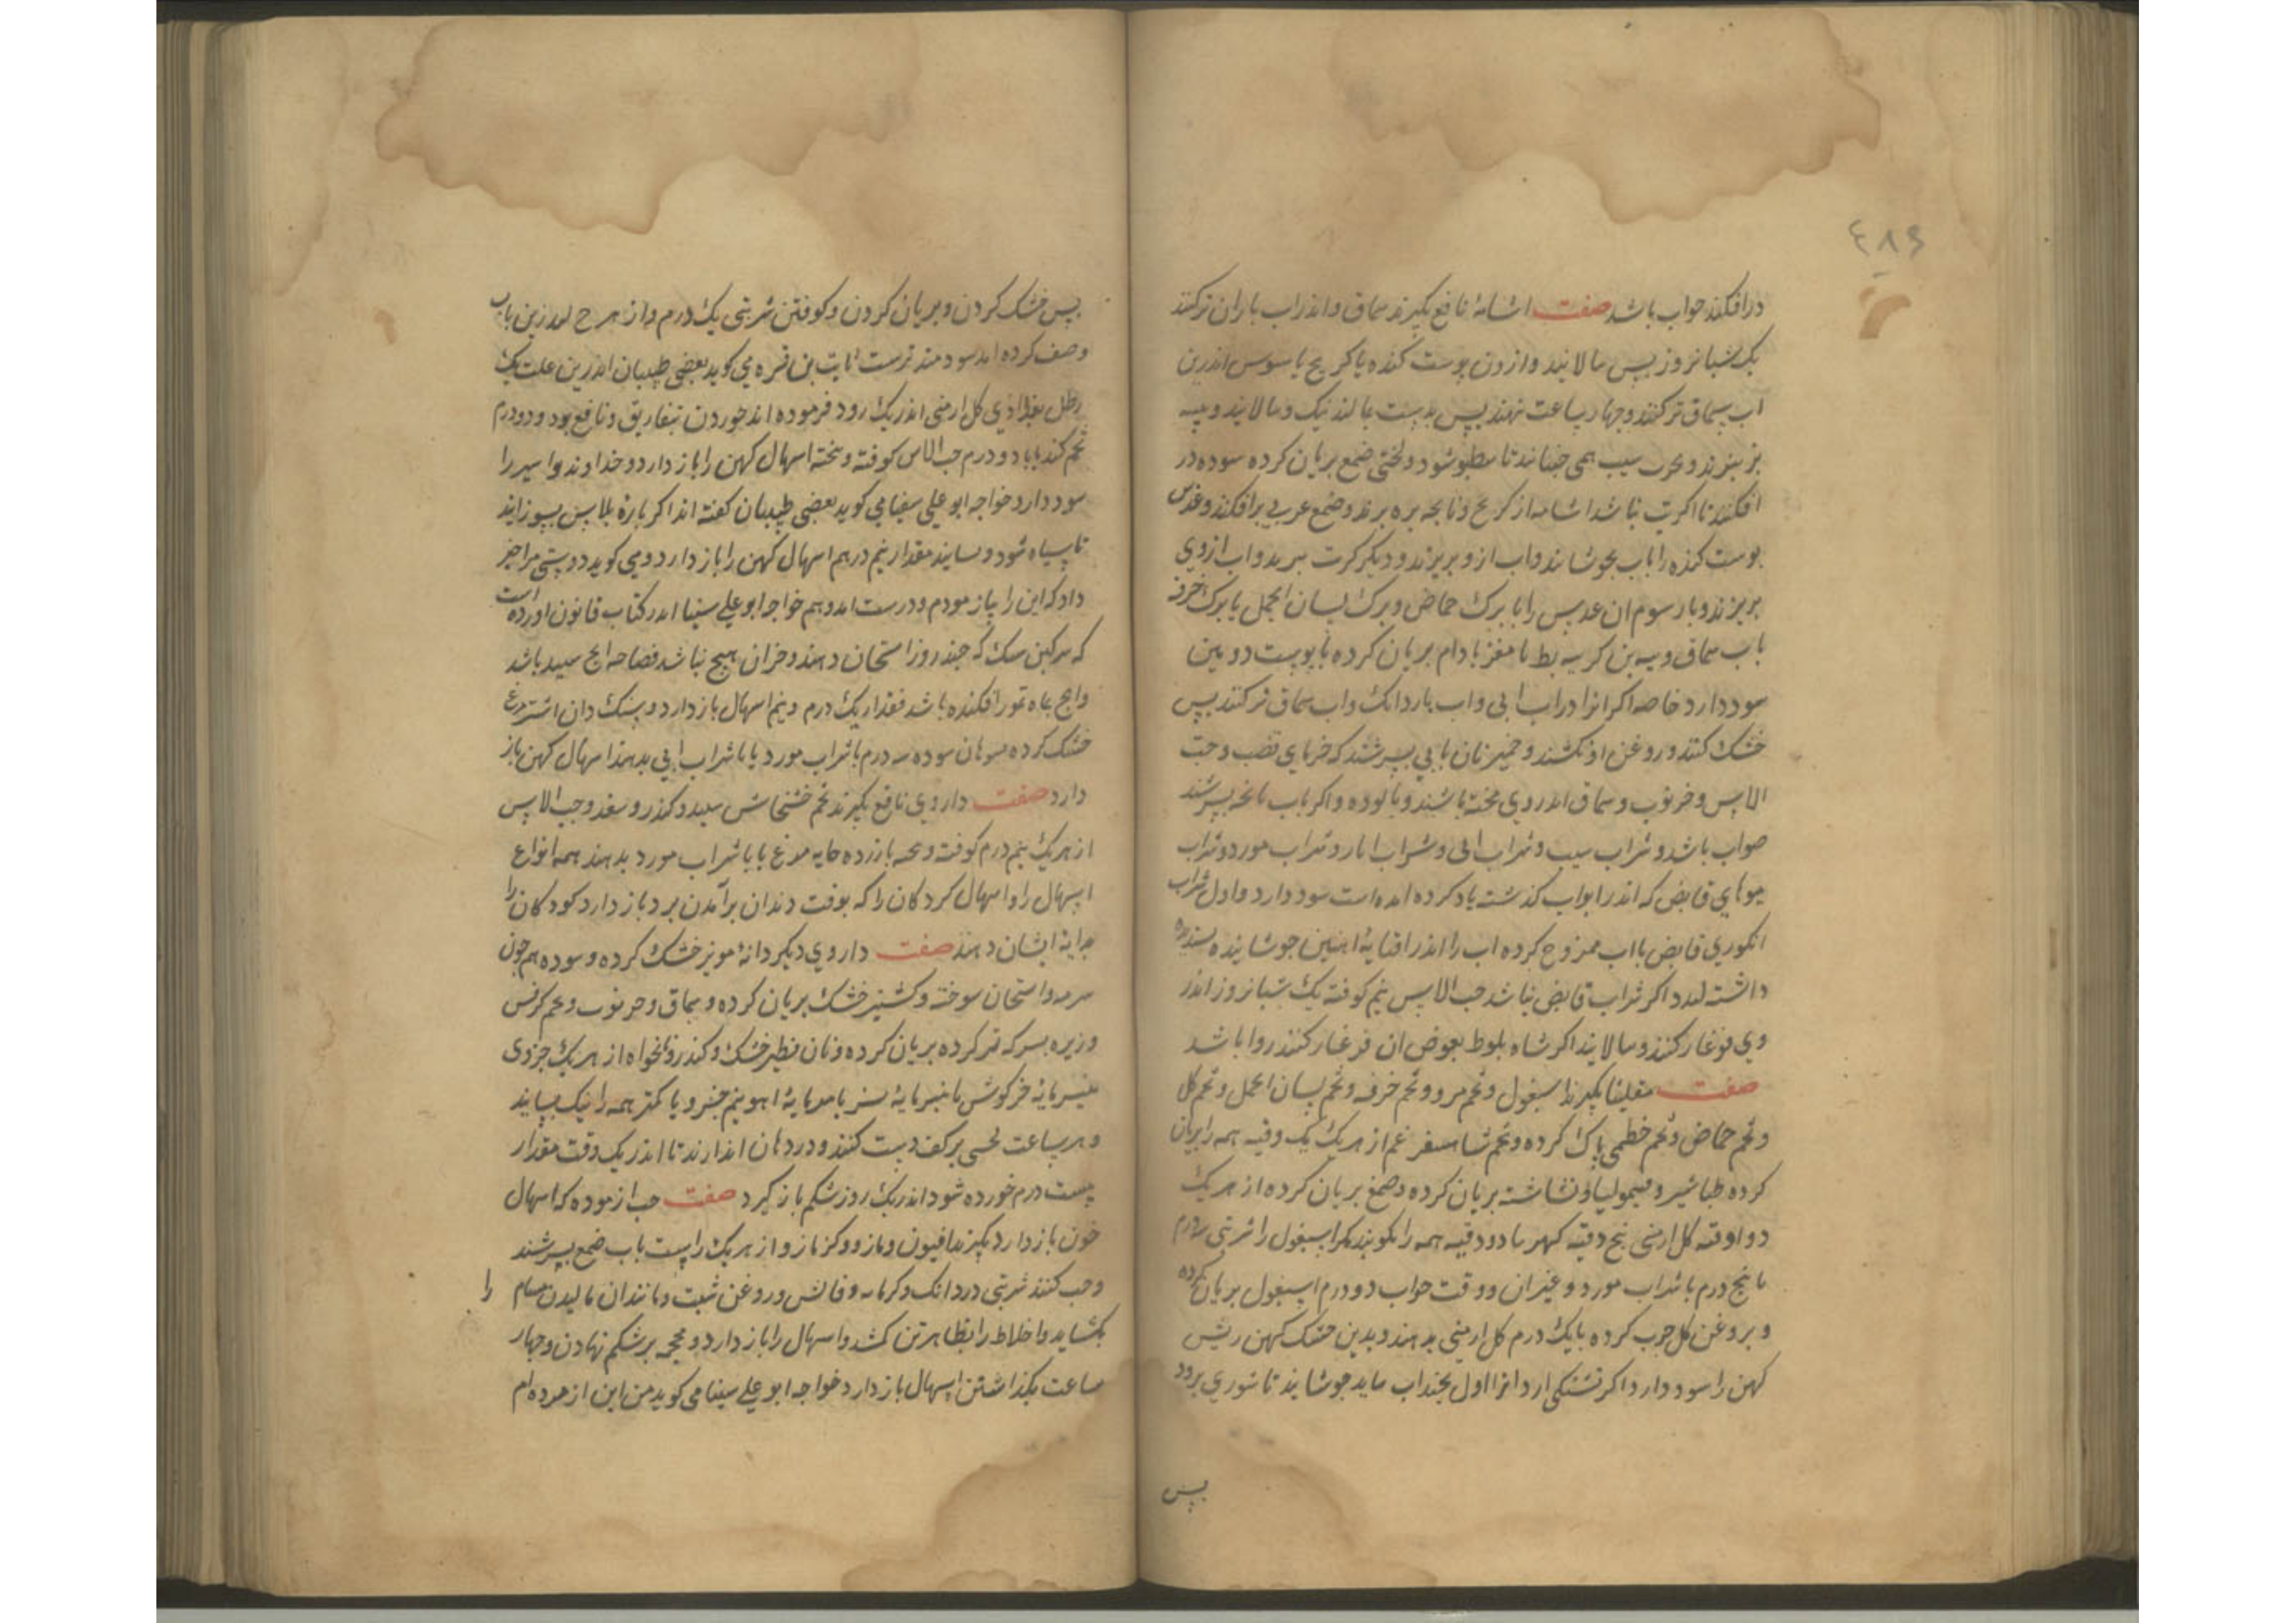 ٤٨٩
درافکنند صواب باشد صفت اشنانهٔ نافع بکیرند سماق واندراب باران ترکنند
یک شبانروز پس بپالایند وارزن پوست کنده یا کرنج یا سوس اندرین
اب سماق ترکنند وچهار ساعت نهند پس بدست بمالند نیک وبپالایند وپیه
بز بپزند وبچرب سیب همی جنبانند تا شود ولختی صمغ بریان کرده سوده در
افکنند تا نباشد از کرنج وپاچه بره برند وصمغ عربی برافکنند وعدس
پوست کنده را باب بجوشانند واب ازو بریزند ودیکر کرت ببرند واب ازوی
بریزند وبار سوم ان عدس را با برک حماض وبرک لسان الحمل یا برک خرفه
باب سماق وپیه بط با مغز بادام بریان کرده با پوست
سود دارد خاصه اکر انرا دراب ابی واب باردانک واب سماق ترکنند پس
خشک کنند وروغن او بکشند وخمیر نان بابی بسرشند که خرمای قصب وحب
الاس وخرنوب وسماق اندروی پخته باشند وپالوده واکر باب بسرشند
صواب باشد وشراب سیب وشراب ابی وشراب انار وشراب مورد وشراب
میوهای قابض که اندر ابواب کذشته یاد کرده امده است سود دارد واول شراب
انکوری قابض بااب ممزوج کرده اب را اندر افتابهٔ اهنین جوشانیده
داشته اکر شراب قابض نباشد حب الاس نیم کوفته یک شبانروز اندر
وی فرغار کنند وبپالایند اکر شاه بلوط بعوض ان فرغار کنند روا باشد
صفت مقلیثا بکیرند اسبغول وتخم مرو وتخم خرفه وتخم لسان الحمل وتخم کل
وتخم حماض وتخم خطمی پاک کرده وتخم شاهسفرغم از هریک یک وقیه همه را بریان
کرده طباشیر وقیمولیا ونشاشته بریان کرده وصمغ بریان کرده از هریک
دو اوقیه کل ارمنی پنج وقیه کهربا دو وقیه همه را بکوبند مکر اسبغول را شربتی سه درم
تا پنج درم با شراب مورد وغیر ان ووقت خواب دو درم اسبغول بریان کرده
وبروغن کل چرب کرده با یک درم کل ارمنی بدهند وبدین کهن ریش
کهن را سود دارد واکر تشنکی ارد انرا اول بچند اب بباید جوشانید تا شوری برود
پس
پس خشک کردن وبریان کردن وکوفتن شربتی یک درم واز هرچ اندرین باب
وصف کرده اند سودمندترست ثابت بن قره می کوید بعضی طبیبان اندرین علت یک
رطل بغدادی کل ارمنی اندر یک روز فرموده اند خوردن بتفاریق ونافع بود ودو درم
تخم کندنا با دو درم حب الاس کوفته وپخته اسهال کهن را باز دارد وخداوند بواسیر را
سود دارد خواجه ابو علی سینا می کوید بعضی طبیبان کفته اند اکر پارهٔ پلاس بسوزانند
تا سیاه شود وبسایند مقدار نیم درهم اسهال کهن را باز دارد ومی کوید دوستی مرا خبر
داد که این را بیازمودم ودرست امد وهم خواجه ابو علی سینا اندر کتاب قانون اورده است
که سرکین سک که چند روز استخوان دهند وجز ان هیچ نباشد سپید باشد
وانچ بماه تموز افکنده باشد مقدار یک درم ونیم اسهال باز دارد وسنک دان اشترمرغ
خشک کرده بسوهان سوده سه درم با شراب مورد یا با شراب ابی بدهند اسهال کهن باز
دارد صفت داروی نافع بکیرند تخم خشخاش سپید وکندر وسعد وحب الاس
از هریک نیم درم کوفته با زرده خایه مرغ یا با شراب مورد بدهند همه انواع
اسهال را واسهال کودکان را که بوقت دندان برآمدن بود باز دارد کودکان را
بدایهٔ ایشان دهند صفت داروی دیکر دانهٔ مویز خشک کرده وسوده همچون
سرمه واستخوان سوخته وکشنیز خشک بریان کرده وسماق وخرنوب وتخم کرفس
وزیره بسرکه تر کرده بریان کرده ونان فطیر خشک وکندر ونانخواه از هریک جزوی
پنیرمایهٔ خرکوش یا پنیرمایهٔ بز یا پنیرمایهٔ اهو نیم جزو یا کمتر همه را نیک بسایند
وهر ساعت لختی بر کف دست کنند ودر دهان اندازند تا اندر یک وقت مقدار
بیست درم خورده شود اندر یک روز شکم باز کیرد صفت حب ازموده که اسهال
خون باز دارد بکیرند افیون ومازو وکزمازو از هریک راست باب صمغ بسرشند
وحب کنند شربتی دو دانک وکرمابه ومالش وروغن شبت ومانند ان مالیدن مسام را
بکشاید واخلاط را بظاهر تن کشد واسهال را باز دارد ومحجمه بر شکم نهادن وچهار
ساعت بکذاشتن اسهال باز دارد خواجه ابو علی سینا می کوید من این ازموده ام